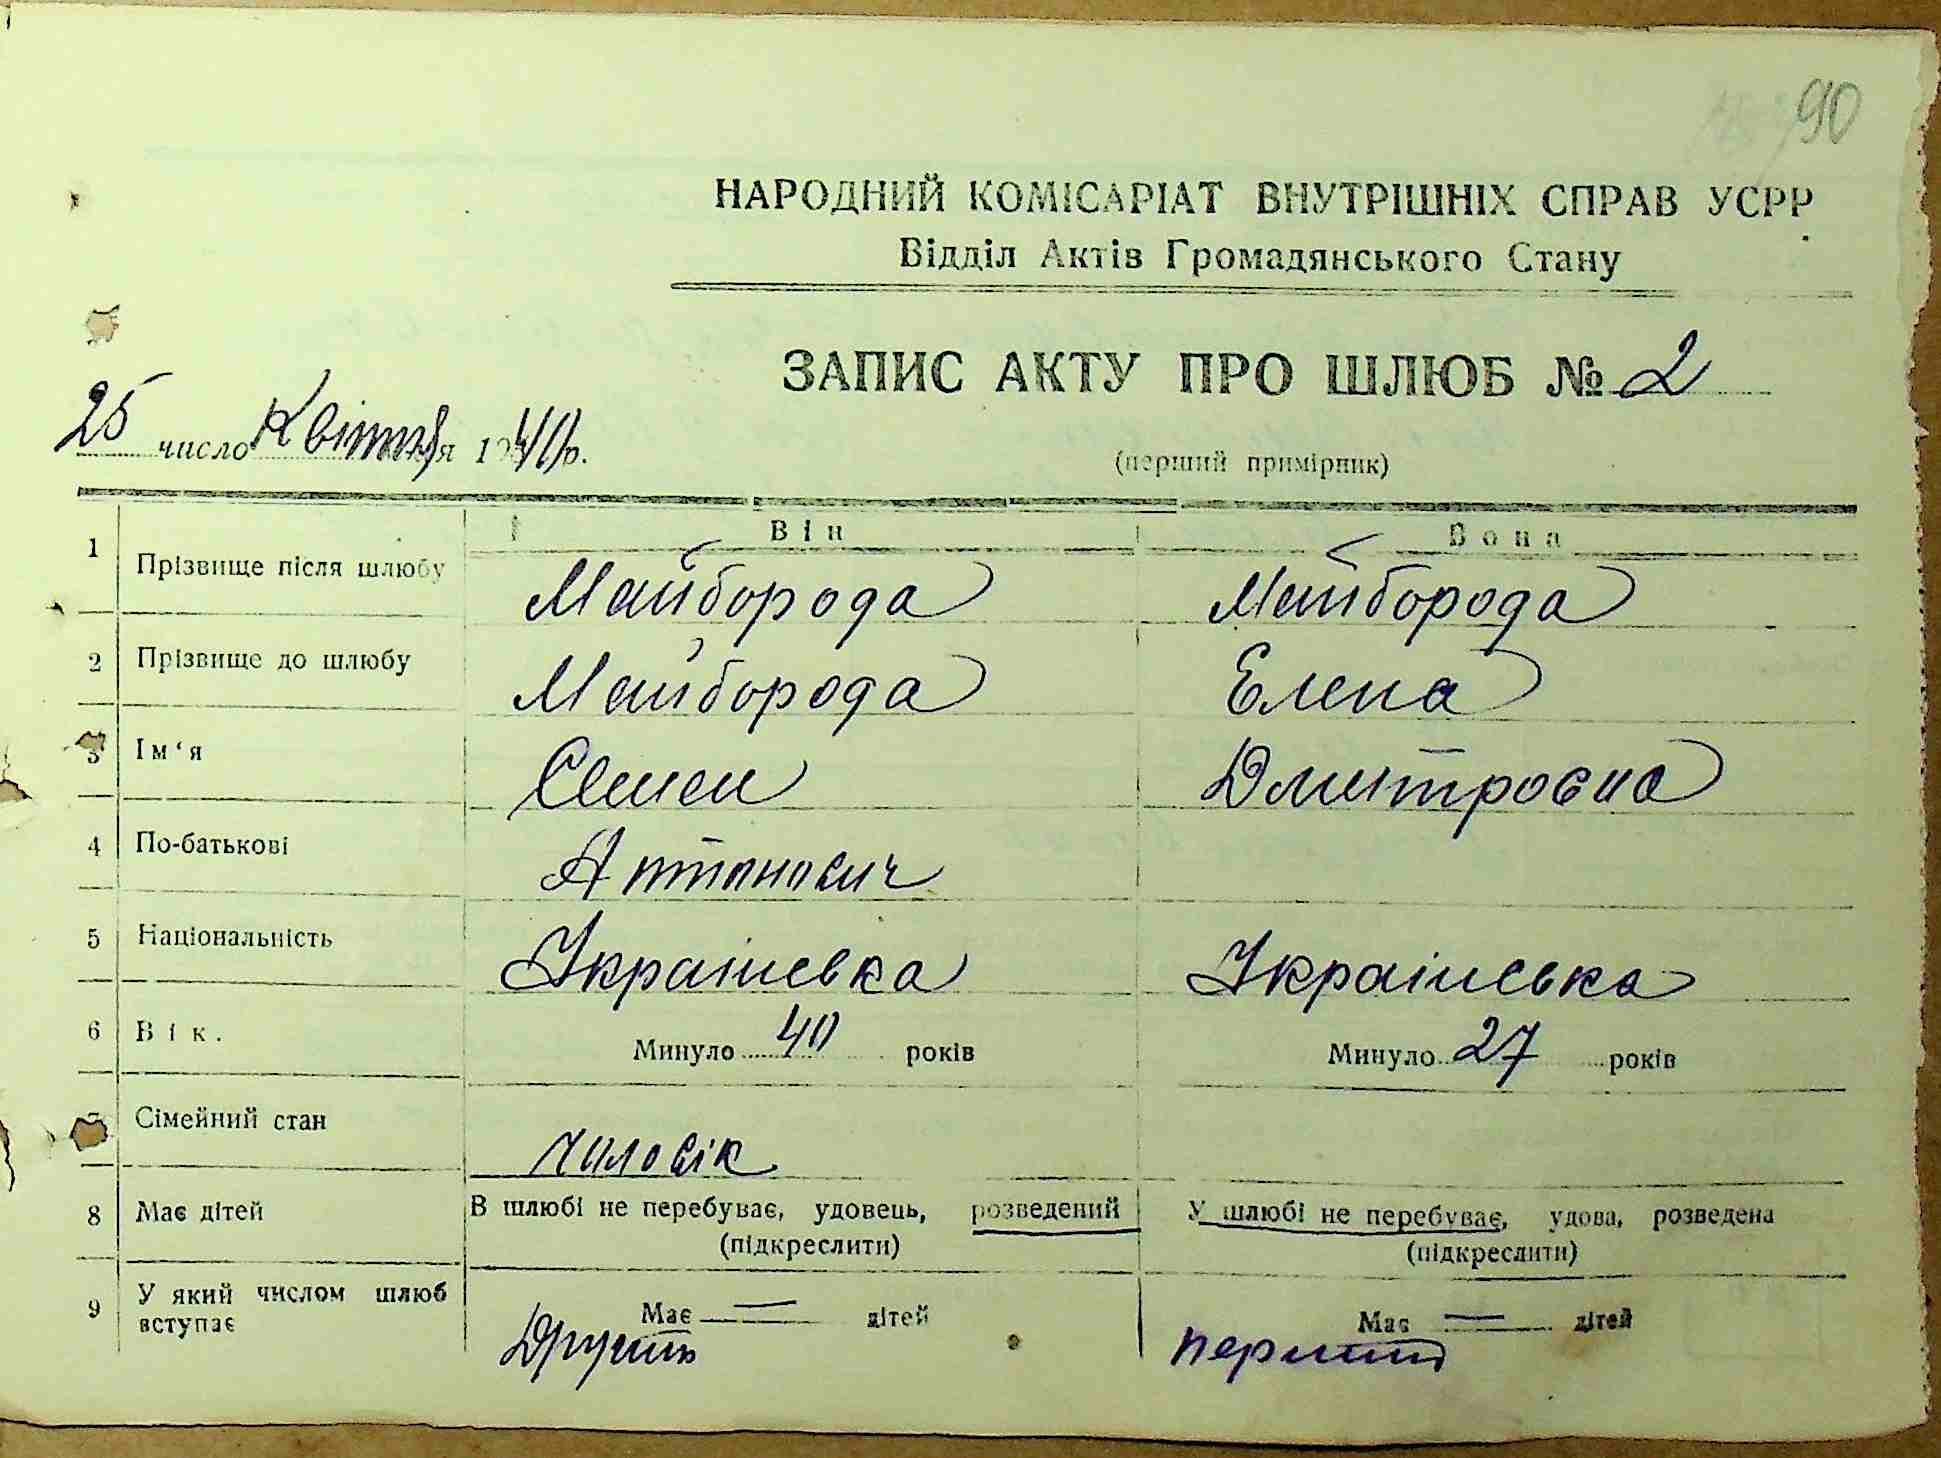 90
НАРОДНИЙ КОМІСАРІАТ ВНУТРІШНІХ СПРАВ УСРР
Відділ Актів Громадянського Стану
ЗАПИС АКТУ ПРО ШЛЮБ № 2
25 число Квітня 1940 р.
(перший примірник)
Він Вона
1 Прізвище після шлюбу Майборода Майборода
2 Прізвище до шлюбу Майборода Елена
3 Ім'я Семен Дмитровна
4 По-батькові Антонович
5 Національність Українська Українська
6 Вік. Минуло 40 років Минуло 27 років
7 Сімейний стан чиловік
8 Має дітей В шлюбі не перебуває, удовець, розведений У шлюбі не перебуває, удова, розведена
(підкреслити) (підкреслити)
9 У який числом шлюб Має — дітей Має — дітей
вступає Другий перший